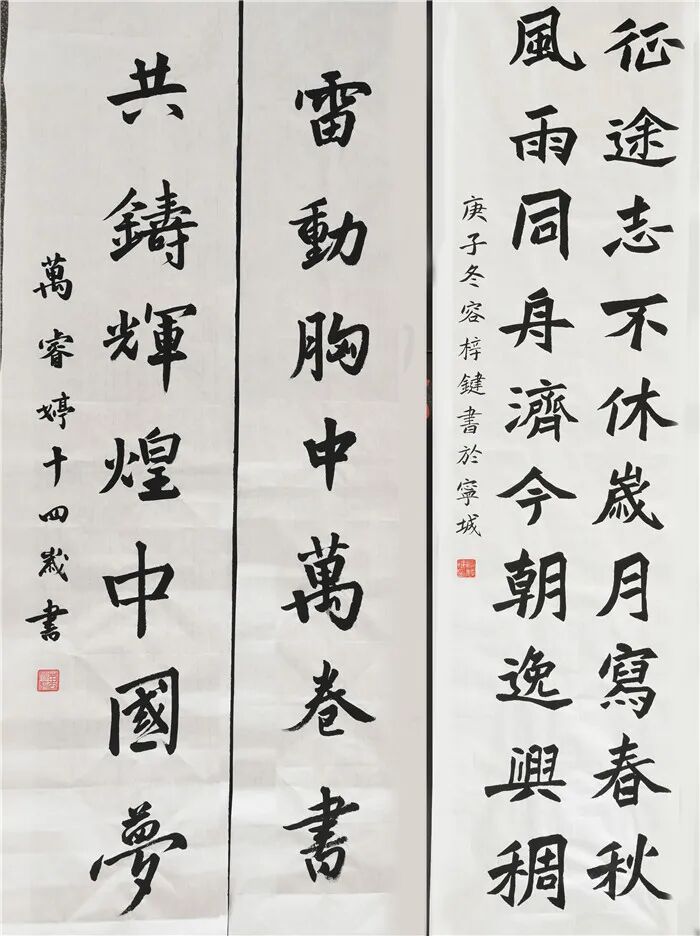 征途志不休歲月寫春秋
風雨同舟濟今朝逸興稠
庚子冬容梓鍵書於寧城
雷動胸中萬卷書
共鑄輝煌中國夢
萬睿婷十四歲書